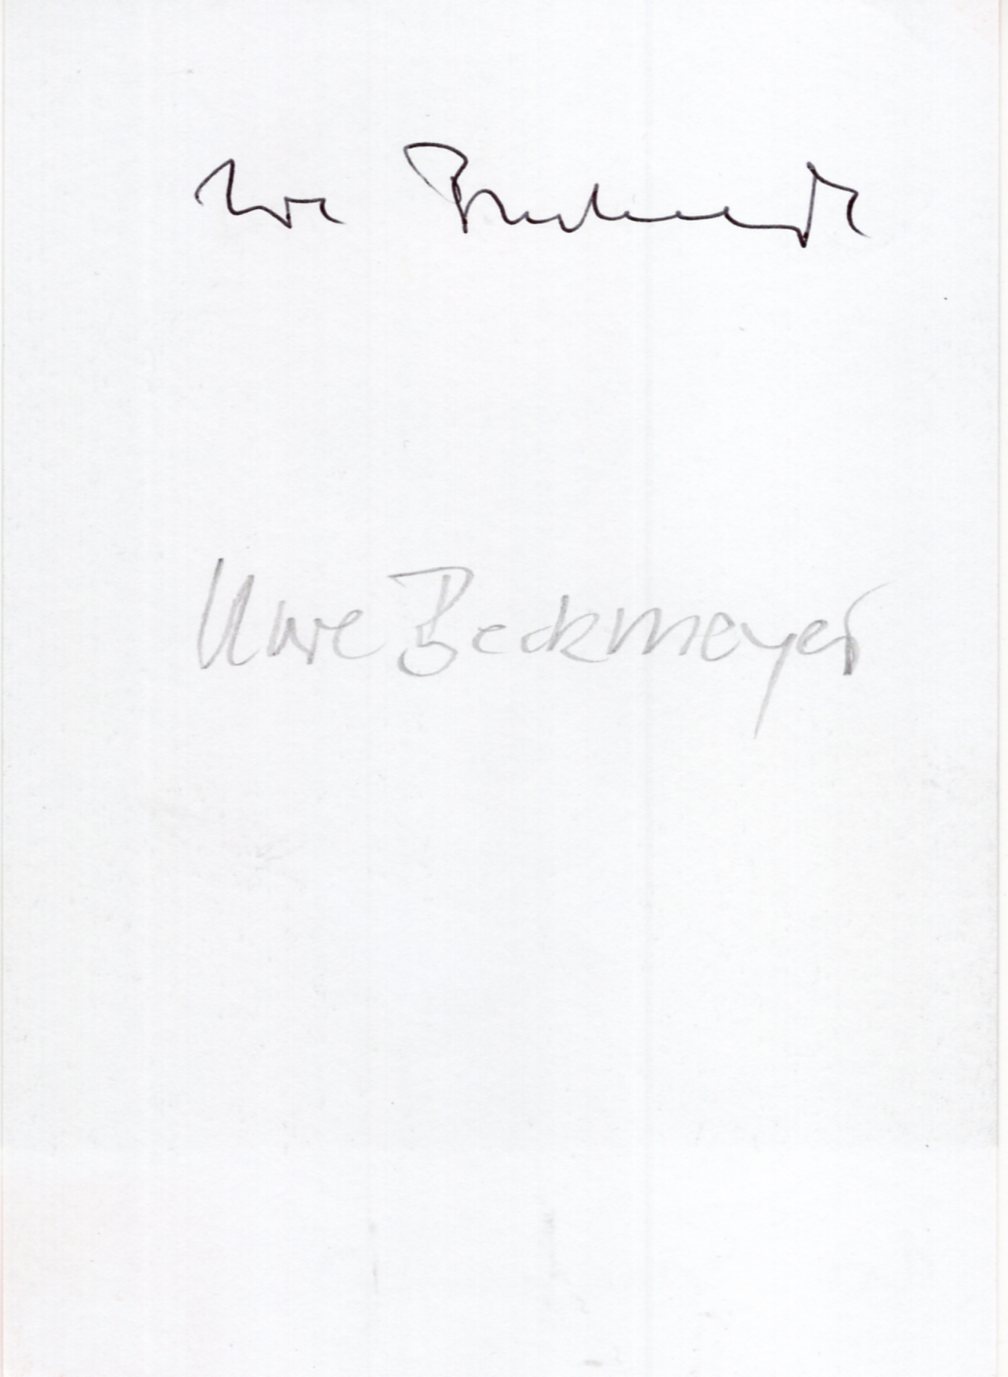 Uwe Beckmeyer
Uwe Beckmeyer